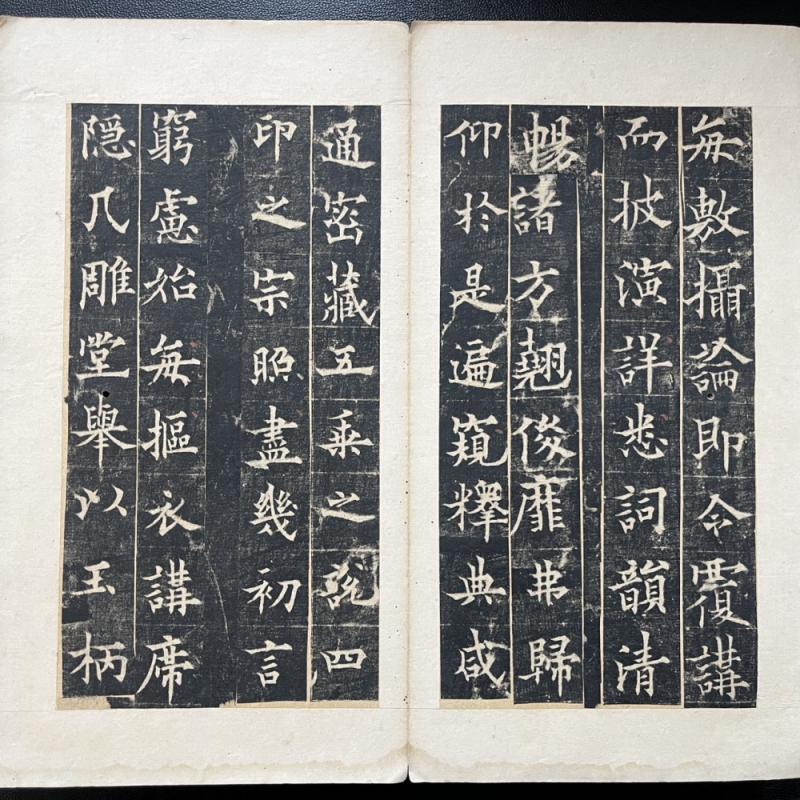 每敷攝論即令覆講
而披演詳悉詞韻清
暢諸方翹俊靡弗歸
仰於是遍窺釋典咸
通密藏五乘之說四
印之宗照盡幾初言
窮慮始每摳衣講席
隱几雕堂舉以玉柄